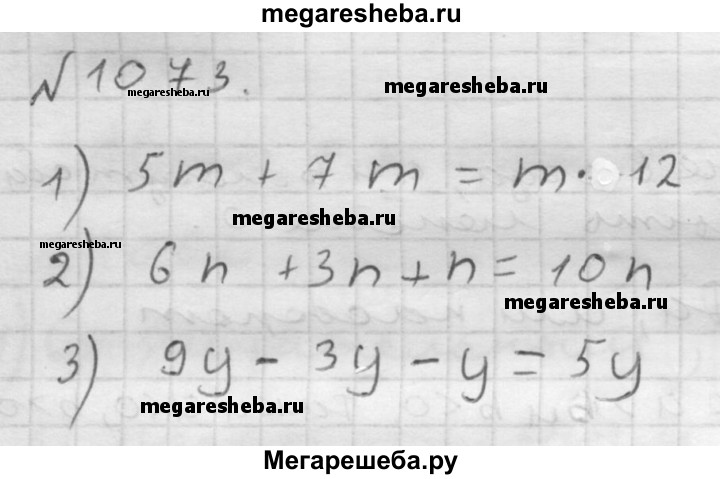 megaresheba.ru
№ 1073.
megaresheba.ru
megaresheba.ru
1) 5m + 7m = m · 12
megaresheba.ru
megaresheba.ru
2) 6n + 3n + n = 10n
megaresheba.ru
3) 9y - 3y - y = 5y
megaresheba.ru
Мегарешеба.ру